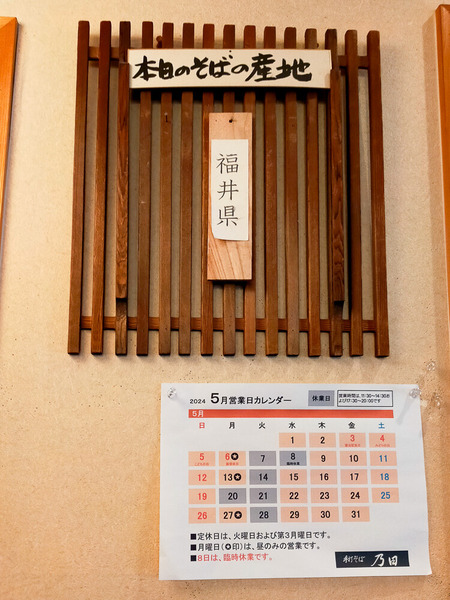 本日のそばの産地
福井県
2024 5月営業日カレンダー 休業日 営業時間は、11:30~14:30および17:30~20:00です
5月
日 月 火 水 木 金 土
1 2 3 4
5 6✪ 7 8 9 10 11
臨時休業
12 13✪ 14 15 16 17 18
19 20 21 22 23 24 25
26 27✪ 28 29 30 31
■定休日は、火曜日および第3月曜日です。
■月曜日(✪印)は、昼のみの営業です。
■8日は、臨時休業です。
手打そば 乃田